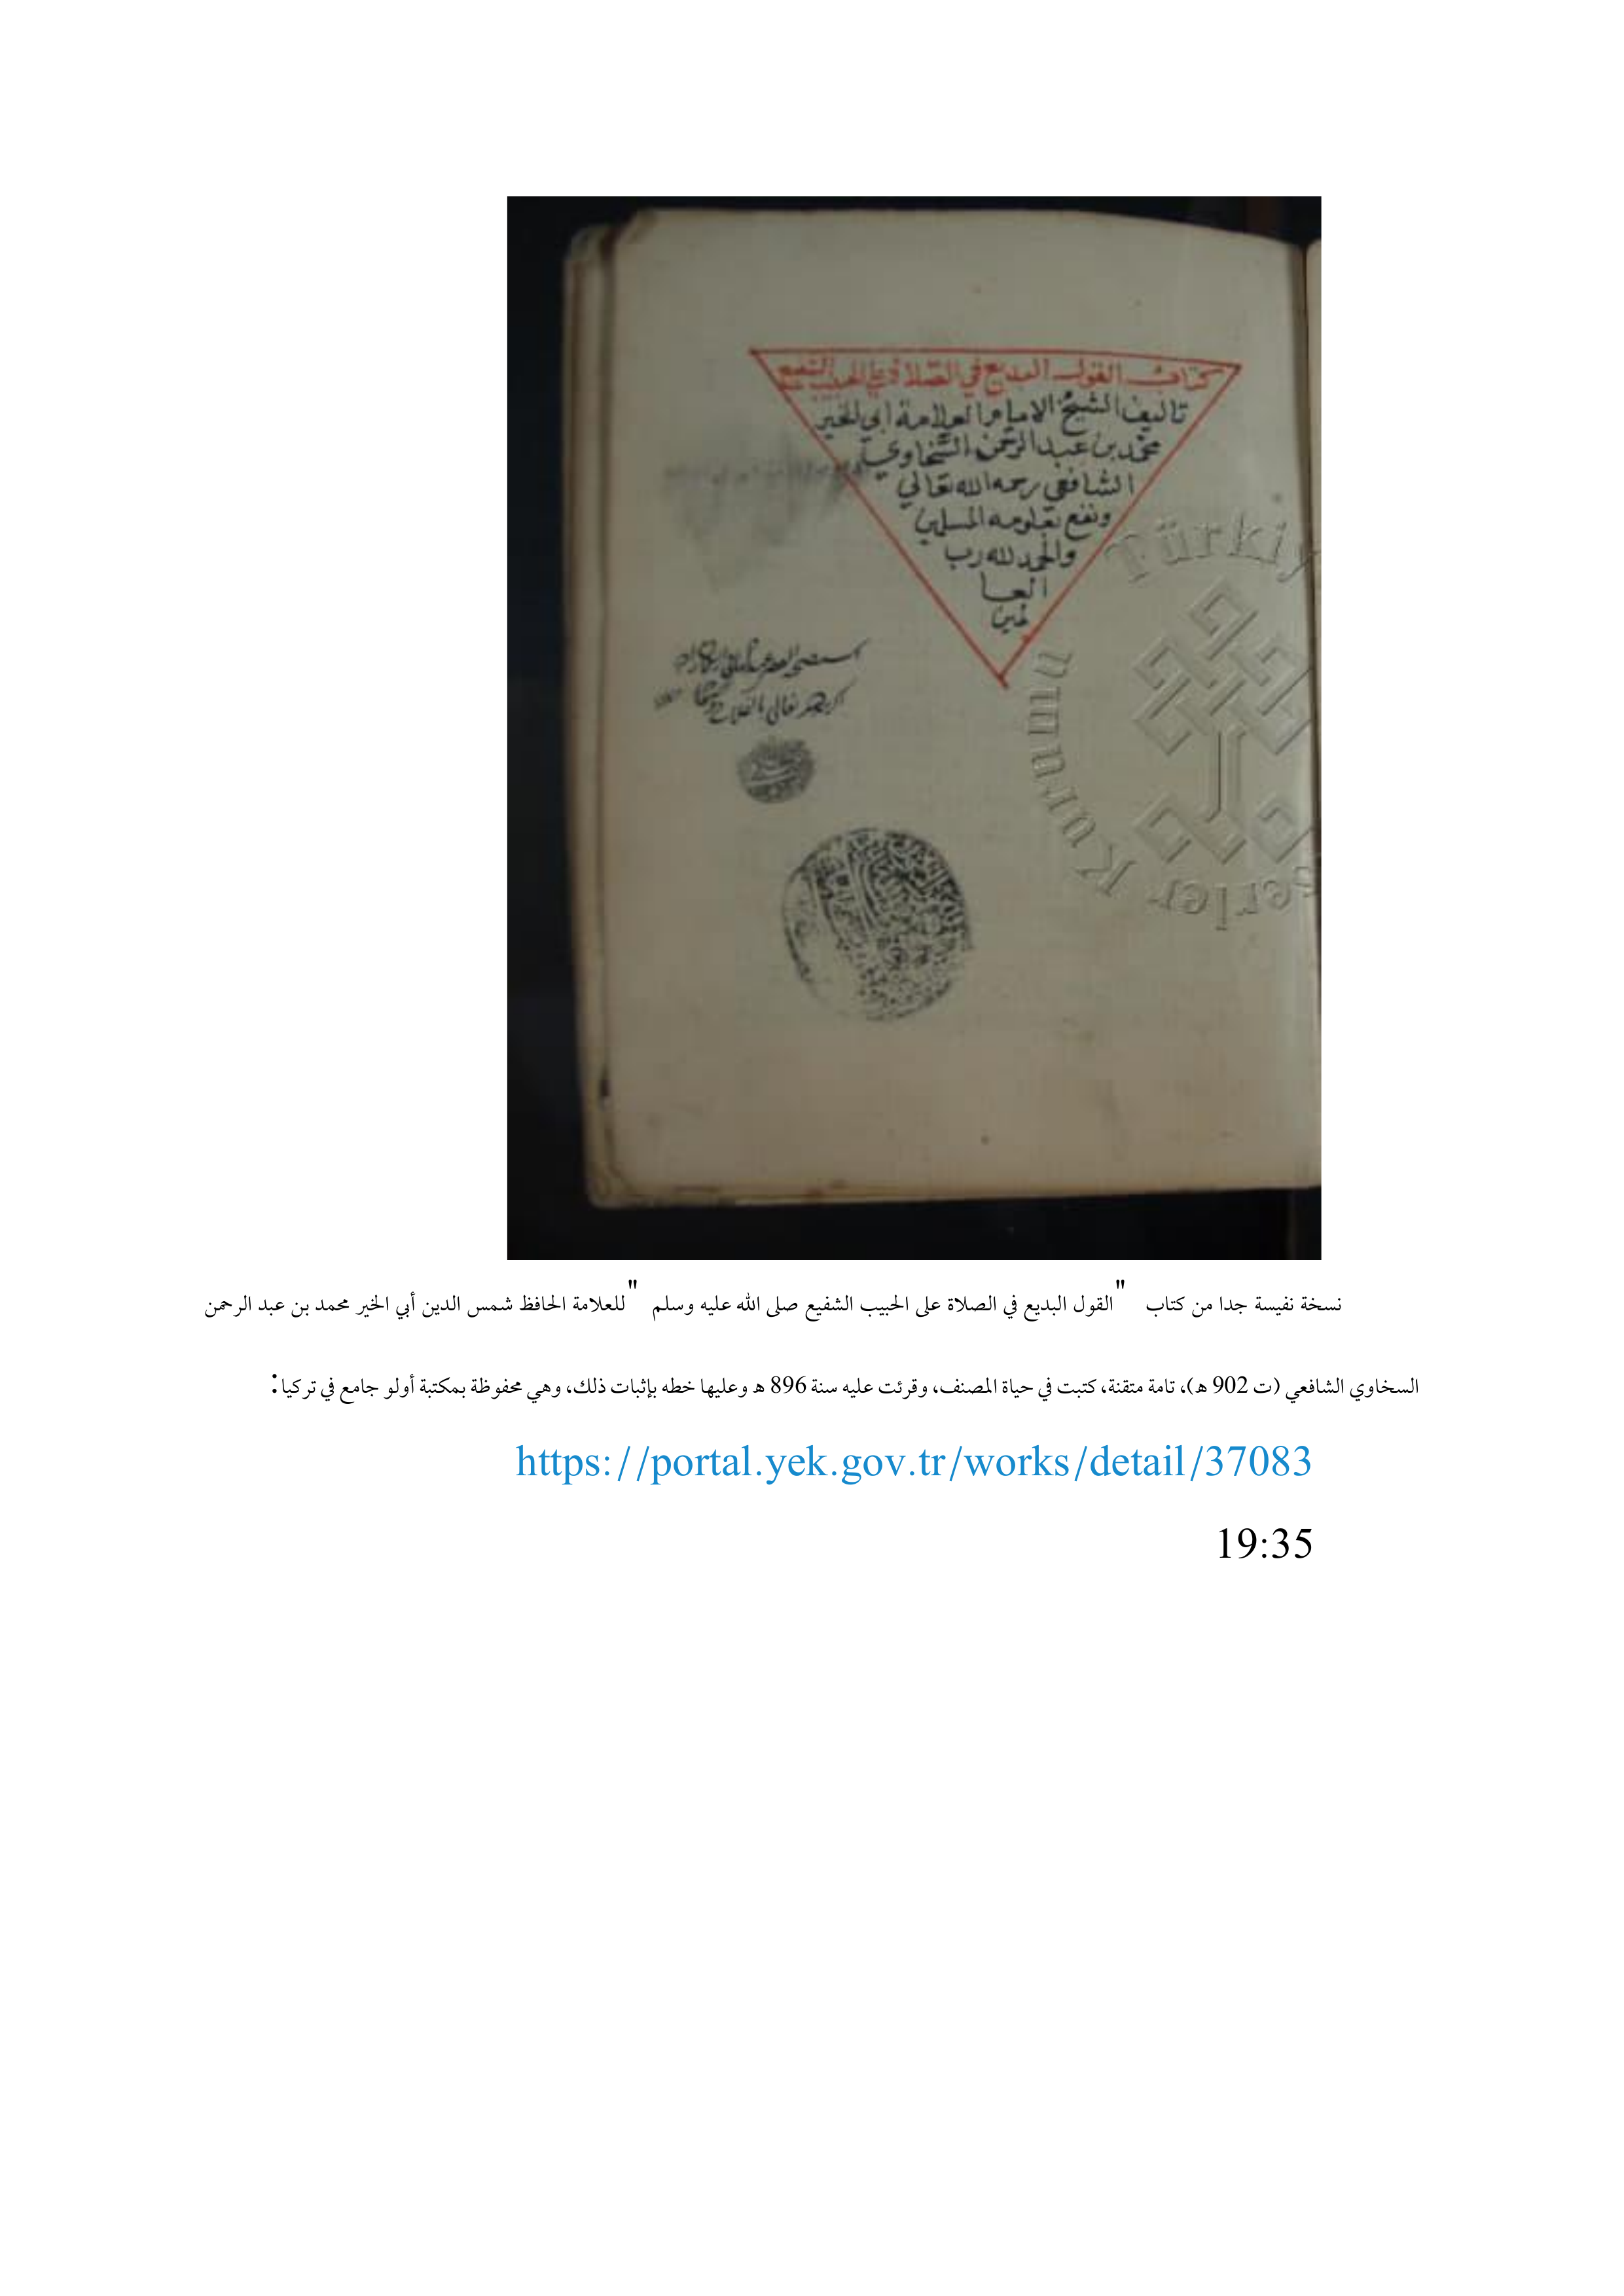 كتاب القول البديع في الصلاة علي الحبيب الشفيع
تاليف الشيخ الامام العلامة ابي الخير
محمد بن عبد الرحمن السخاوي
الشافعي رحمه الله تعالي
ونفع بعلومه المسلمين
والحمد لله رب
العا
لمين
Türkiy
تعالى بالفلاح
serler Kurumu
نسخة نفيسة جدا من كتاب "القول البديع في الصلاة على الحبيب الشفيع صلى الله عليه وسلم" للعلامة الحافظ شمس الدين أبي الخير محمد بن عبد الرحمن
السخاوي الشافعي (ت 902 ه)، تامة متقنة، كتبت في حياة المصنف، وقرئت عليه سنة 896 ه وعليها خطه بإثبات ذلك، وهي محفوظة بمكتبة أولو جامع في تركيا:
https://portal.yek.gov.tr/works/detail/37083
19:35